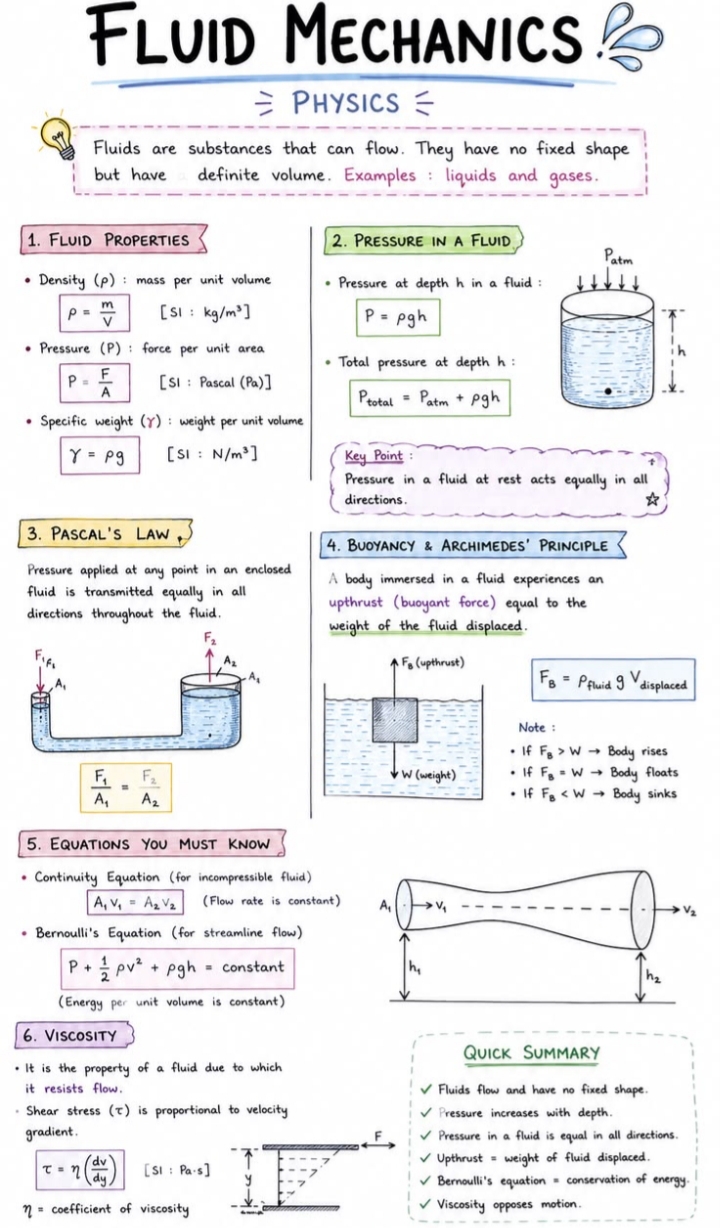 FLUID MECHANICS
PHYSICS
Fluids are substances that can flow. They have no fixed shape
but have definite volume. Examples : liquids and gases.
1. FLUID PROPERTIES
• Density (ρ) : mass per unit volume
ρ = m/V [SI : kg/m³]
• Pressure (P) : force per unit area
P = F/A [SI : Pascal (Pa)]
• Specific weight (γ) : weight per unit volume
γ = ρg [SI : N/m³]
2. PRESSURE IN A FLUID
• Pressure at depth h in a fluid :
P = ρgh
• Total pressure at depth h :
P_total = P_atm + ρgh
P_atm
h
Key Point :
Pressure in a fluid at rest acts equally in all
directions.
3. PASCAL'S LAW
Pressure applied at any point in an enclosed
fluid is transmitted equally in all
directions throughout the fluid.
F₂
F₁ F₁
A₂
A₁
A₁
F₁/A₁ = F₂/A₂
4. BUOYANCY & ARCHIMEDES' PRINCIPLE
A body immersed in a fluid experiences an
upthrust (buoyant force) equal to the
weight of the fluid displaced.
F_B (upthrust)
W (weight)
F_B = ρ_fluid g V_displaced
Note :
• If F_B > W → Body rises
• If F_B = W → Body floats
• If F_B < W → Body sinks
5. EQUATIONS YOU MUST KNOW
• Continuity Equation (for incompressible fluid)
A₁V₁ = A₂V₂ (Flow rate is constant)
• Bernoulli's Equation (for streamline flow)
P + 1/2 ρv² + ρgh = constant
(Energy per unit volume is constant)
A₁ V₁ V₂
h₁
h₂
6. VISCOSITY
• It is the property of a fluid due to which
it resists flow.
• Shear stress (τ) is proportional to velocity
gradient.
τ = η (dv/dy) [SI : Pa·s]
η = coefficient of viscosity
F
y
QUICK SUMMARY
✓ Fluids flow and have no fixed shape.
✓ Pressure increases with depth.
✓ Pressure in a fluid is equal in all directions.
✓ Upthrust = weight of fluid displaced.
✓ Bernoulli's equation = conservation of energy.
✓ Viscosity opposes motion.